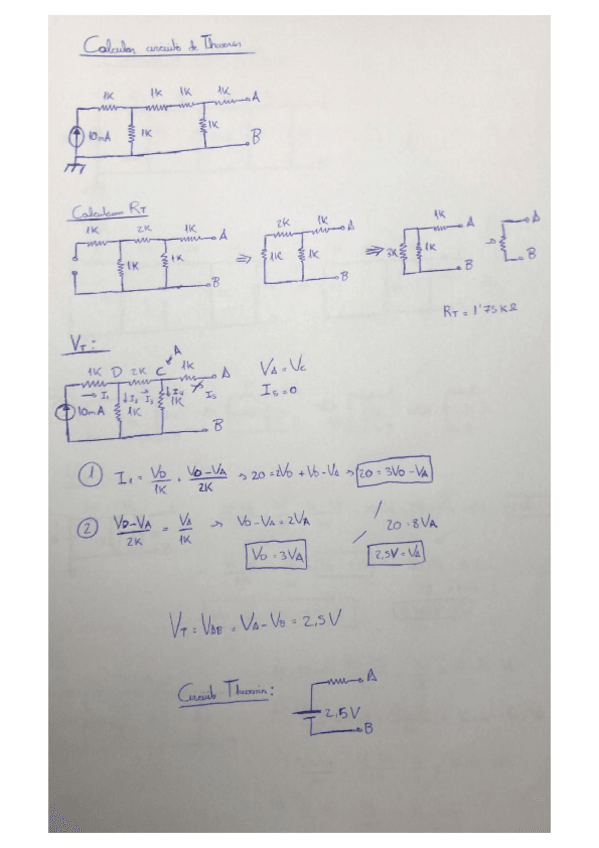 Calcular circuito de Thevenin
1K 1K 1K 1K A
10mA 1K 1K B
Calculamos RT
1K 2K 1K A
1K 1K B
⇒
2K 1K A
1K 1K B
⇒
1K A
3K 1K B
→
A
B
RT = 1'75KΩ
VT:
A
1K D 2K C 1K A
I1 I2 I3 I4 I5
10mA 1K 1K B
VA = VC
I5 = 0
① I1 = VD/1K + VD-VA/2K → 20 = 2VD + VD - VA → 20 = 3VD - VA
② VD-VA/2K = VA/1K → VD - VA = 2VA
VD = 3VA
20 = 8VA
2,5V = VA
VT = VAB = VA - VB = 2,5V
Circuito Thevenin:
A
2,5V
B